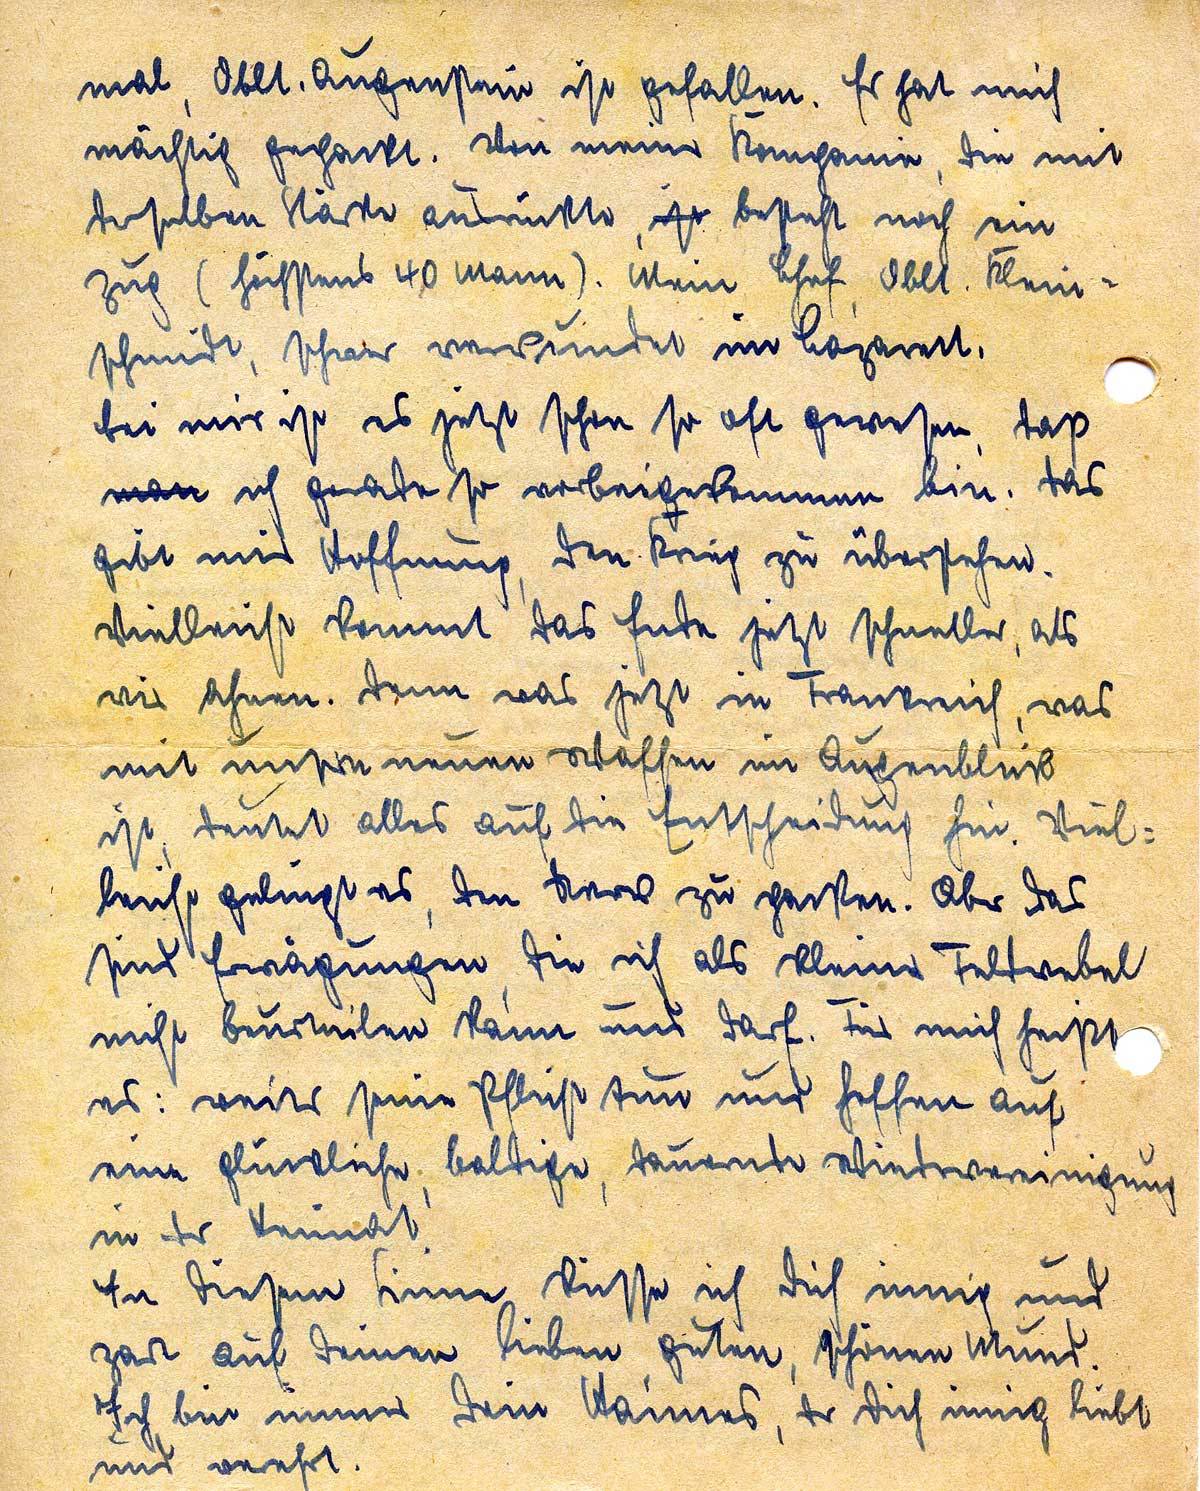 mal, Oblt. Augenstein ist gefallen. Er hat mich
mächtig gepackt. Von meiner Kompanie, die mit
derselben Stärke ausrückte, ist besteht noch ein
Zug (höchstens 40 Mann). Mein Chef, Oblt. Klein=
schmidt, schwer verwundet im Lazarett.
Bei mir ist es jetzt schon so oft gewesen, daß
man ich gerade so vorbeigekommen bin. Das
gibt mir Hoffnung, den Krieg zu überstehen.
Vielleicht kommt das Ende jetzt schneller, als
wir ahnen. Denn was jetzt in Frankreich, was
mit unsern neuen Waffen im Augenblick
ist, deutet alles auf die Entscheidung hin. Viel=
leicht gelingt es, den Nerv zu packen. Aber das
sind Erwägungen, die ich als kleiner Feldwebel
nicht beurteilen kann und darf. Für mich heißt
es: weiter seine Pflicht tun und hoffen auf
eine glückliche, baldige, dauernde Wiedervereinigung
in der Heimat.
In diesem Sinne küsse ich Dich innig und
zart auf Deinen lieben, guten, schönen Mund.
Ich bin immer Dein Hannes, der Dich innig liebt
und verehrt.